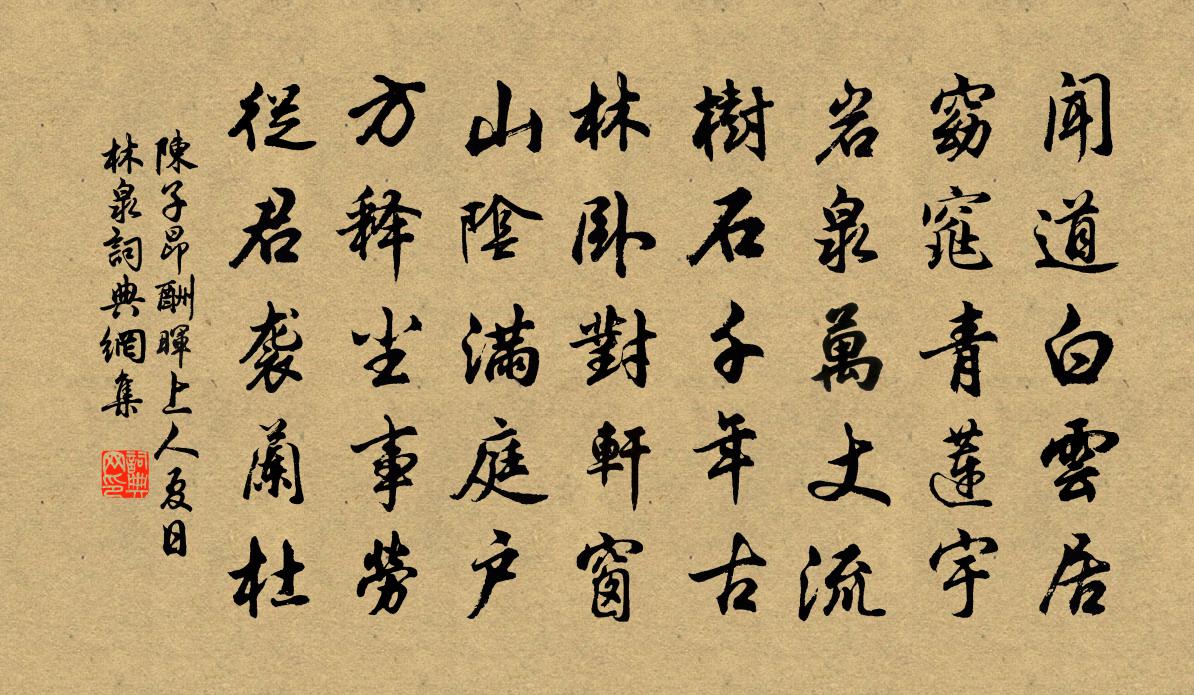 聞道白雲居
窈窕青蓮宇
岩泉萬丈流
樹石千年古
林卧對軒窗
山陰滿庭户
方釋塵事勞
從君袭蘭杜
陳子昂酬暉上人夏日
林泉詞典網集
詞典網印